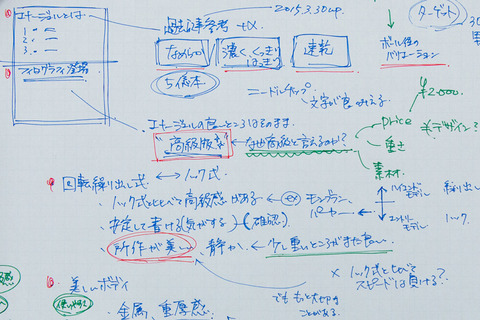 エナージェルとは
1. = =
2. = =
3. = =
過去記事参考 +α
2015.3.30
ターゲット
なめらか
濃く、くっきり
はっきり
速乾
ボール径の
バリエーション
5億本
フィログラフィ登場
ニードルチップ
文字が
エナージェルの良いところはそのまま。
"高級版"
なぜ高級と言えるのか?
price
¥2,000.
デザイン?
素材.
回転繰り出し式 ↔ ノック式
・ノック式とくらべて高級感がある ← ex モンブラン
パーカー
ハイエンド
モデル
エントリー
モデル
繰り出
ノック.
・安定して書ける(気がする) (確認)
・所作が美しい 静か、 ← 少し重いところがまた良い。
× ノック式とくらべて
スピードは負ける?
美しいボディ
でも もっと大切な
ことがある.
・金属、重厚感.
使いやすさ